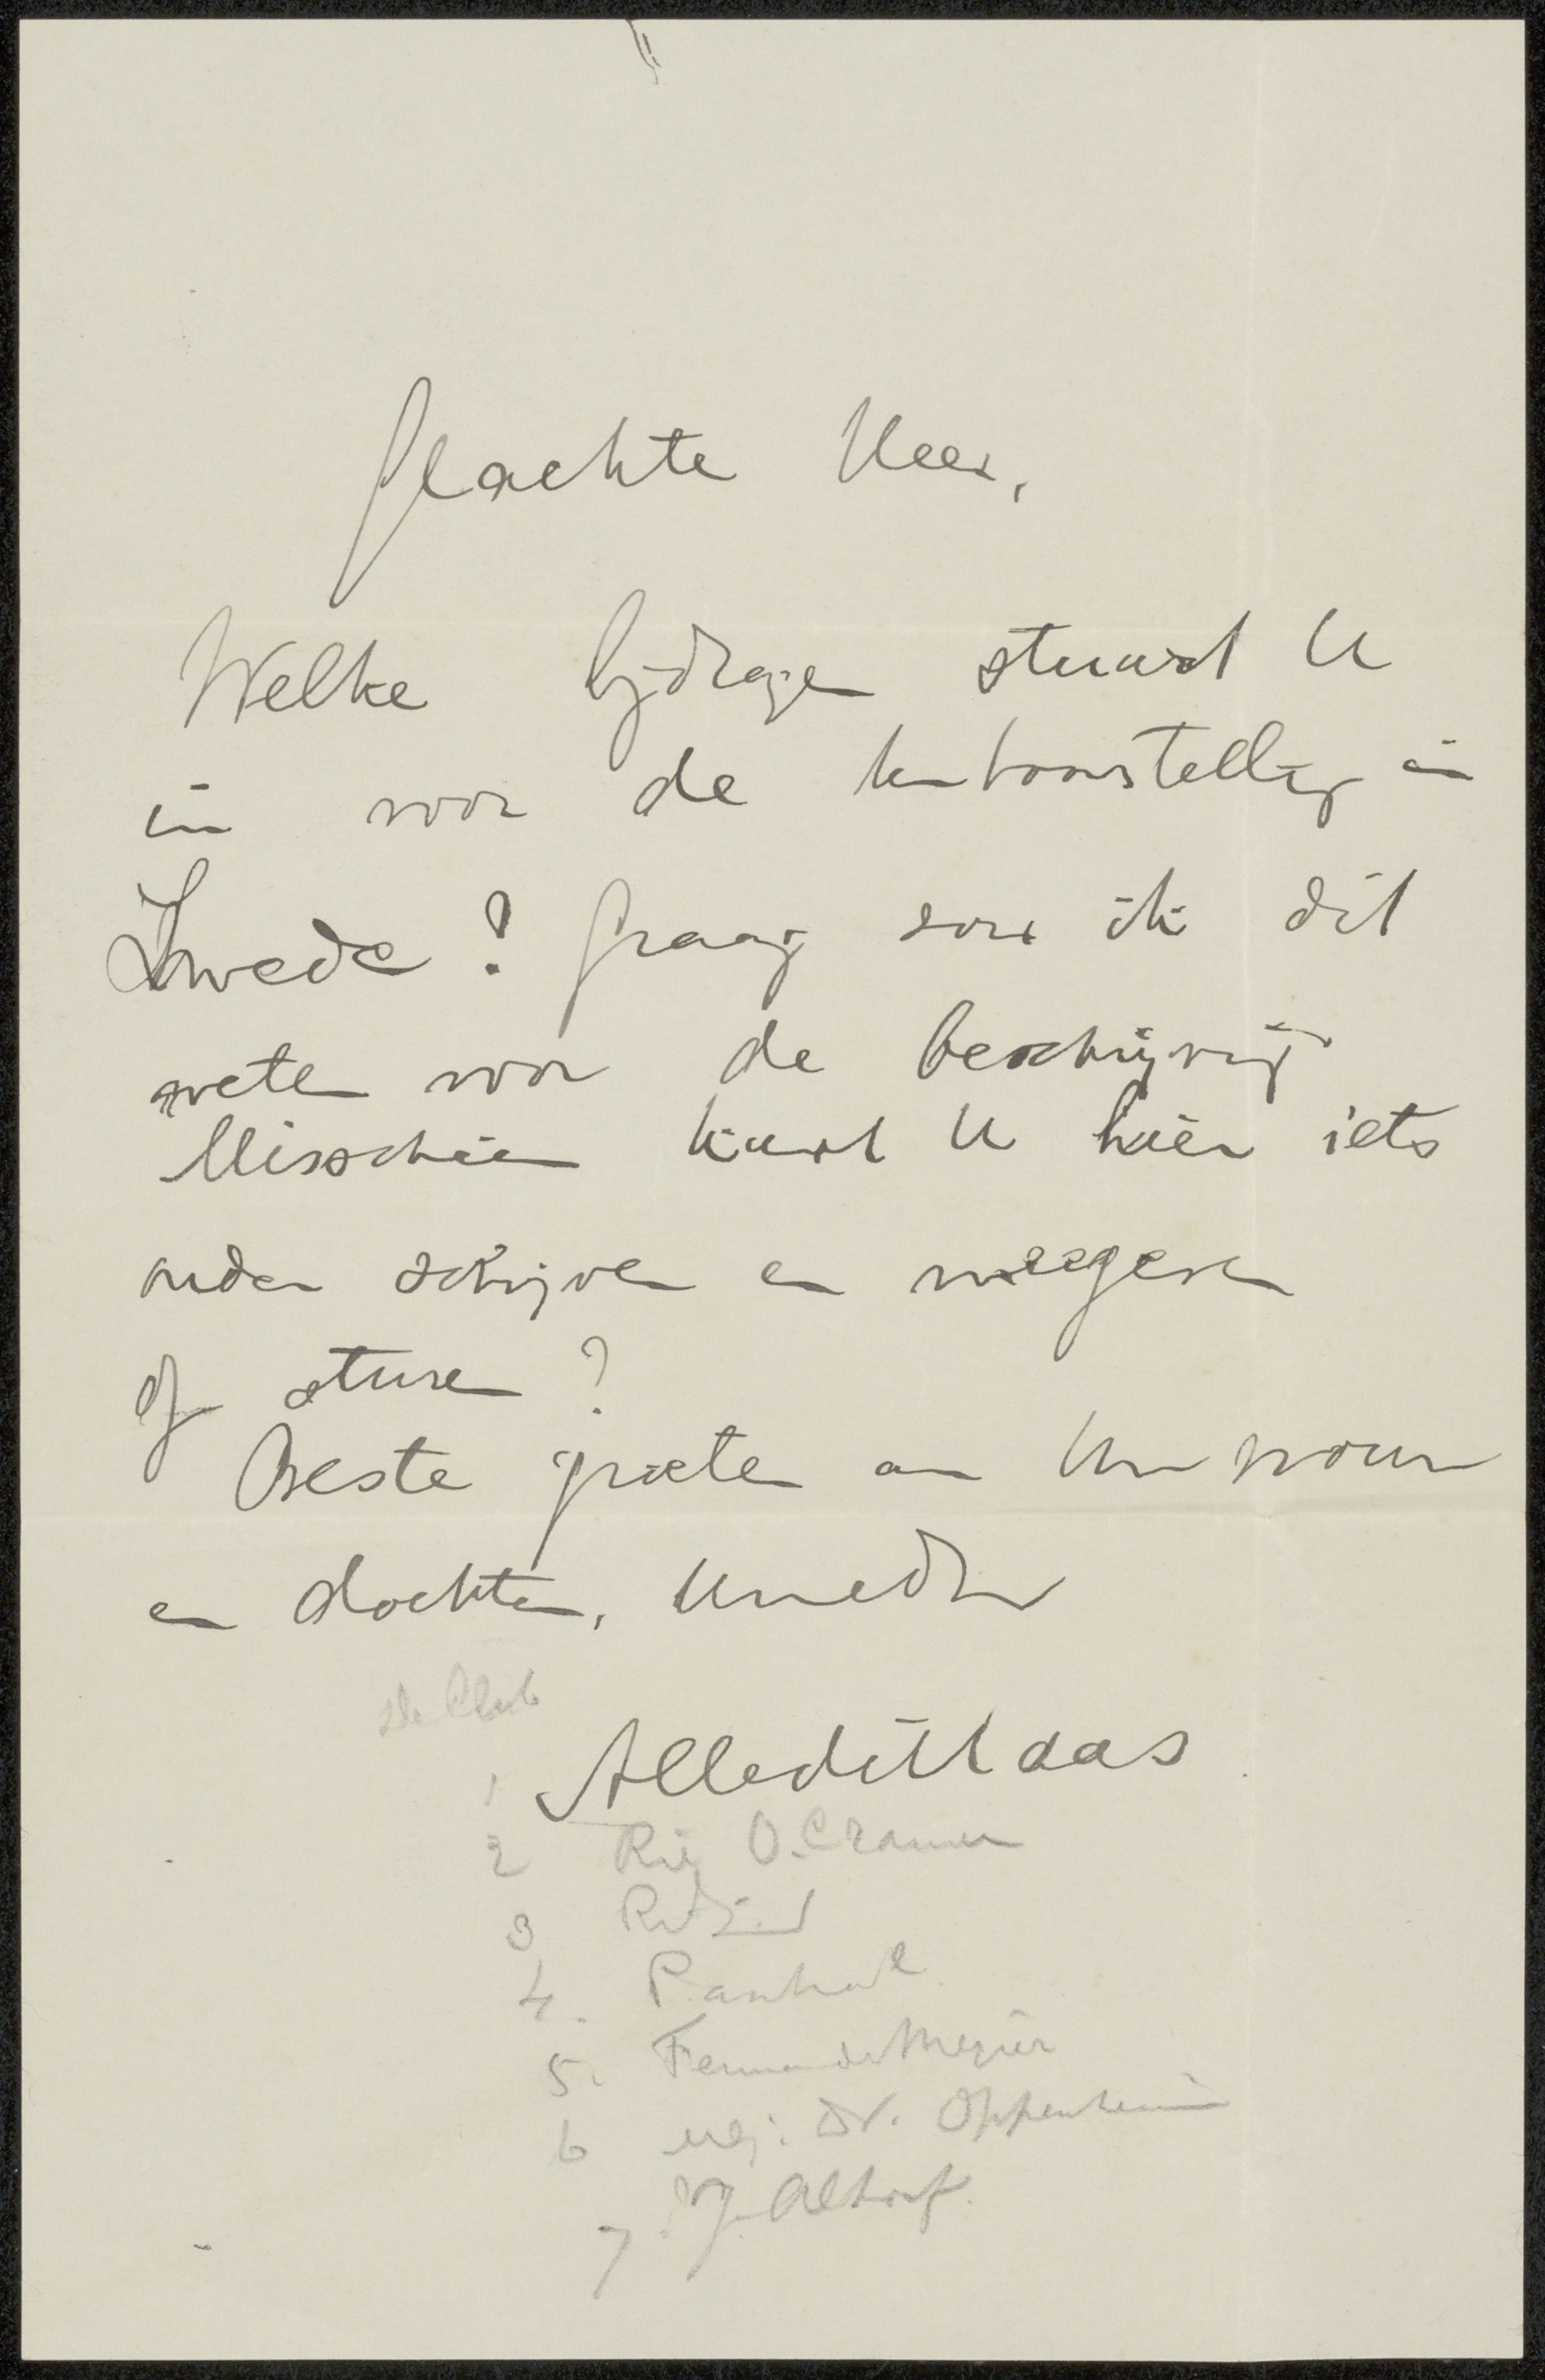 Geachte Heer,
Welke bijdragen stuurt U
in voor de tentoonstelling in
Zweden? Graag zou ik dit
weten voor de beschrijving
Misschien kunt U hier iets
onder schrijven en meegeven
of sturen?
Beste groeten aan Uw vrouw
en dochter, Uw
De Club
1
2 Rie O. Cramer
3
4.
5. Fernande Megier
6 mej. Dr. Oppenheim
7. Altorf.